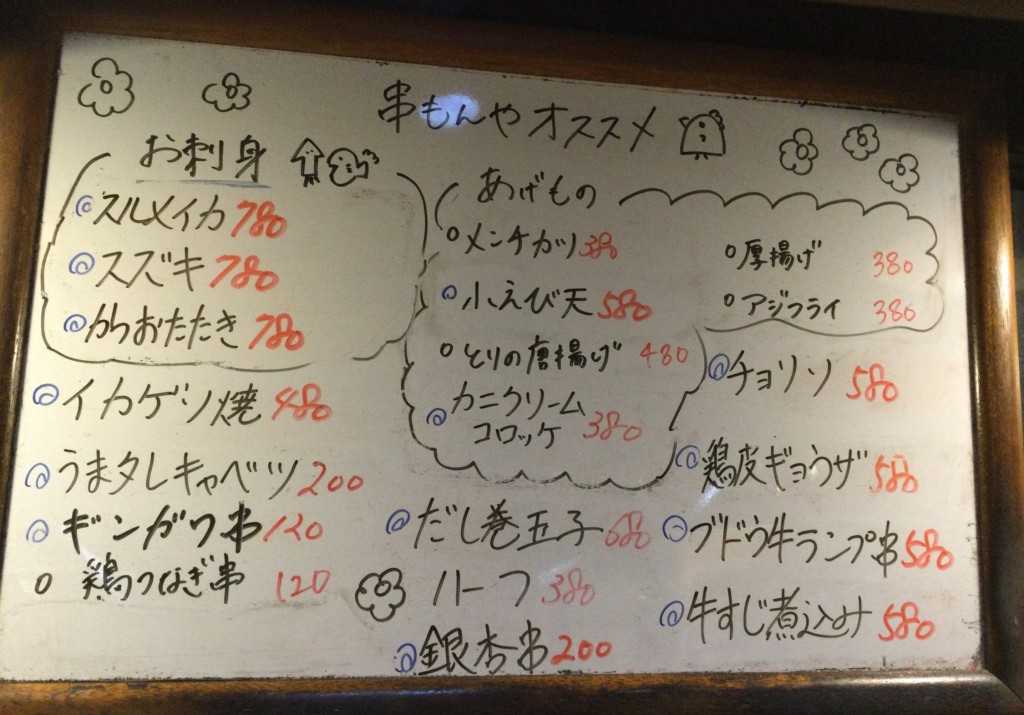 串もんやオススメ
お刺身
スルメイカ 780
スズキ 780
かつおたたき 780
イカゲソ焼 480
うまタレキャベツ 200
ギンガワ串 120
鶏つなぎ串 120
あげもの
メンチカツ 380
小えび天 580
とりの唐揚げ 480
カニクリーム
コロッケ 380
厚揚げ 380
アジフライ 380
だし巻玉子 680
ハーフ 380
銀杏串 200
チョリソ 580
鶏皮ギョウザ 580
ブドウ牛ランプ串 580
牛すじ煮込み 580